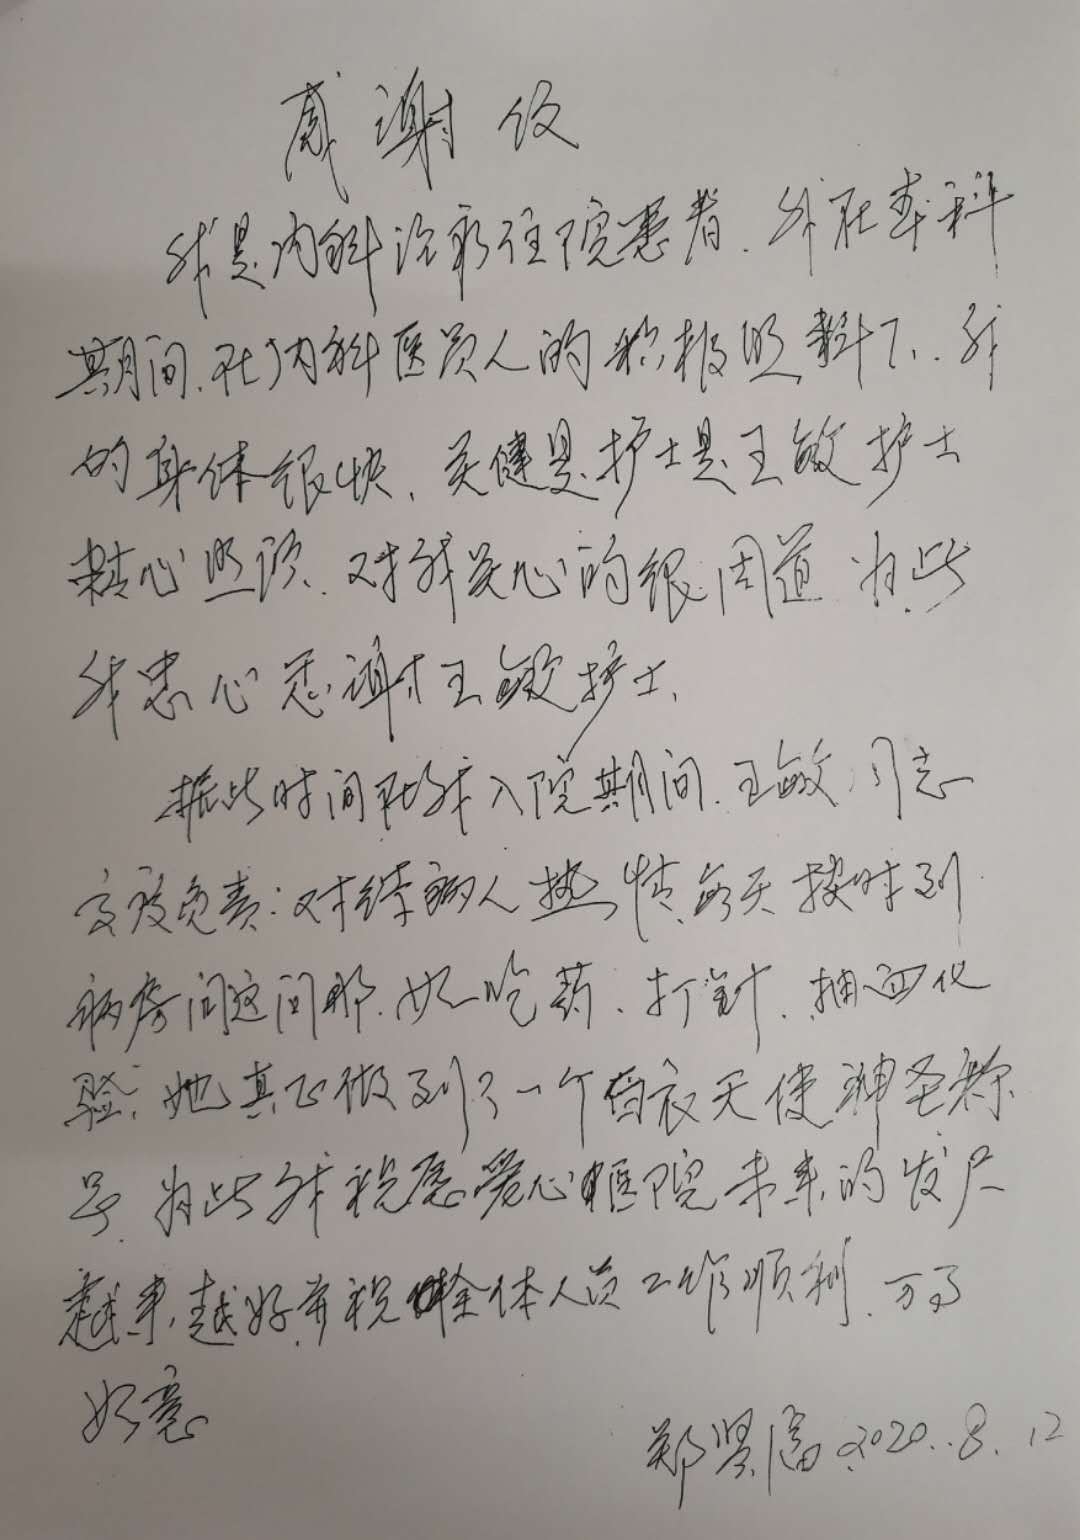 感谢信
我是内科治疗住院患者.我在本科
期间.在内科医员人的积极照料下.我
的身体很快.关健是护士是王敏护士
精心照顾.对我关心的很周道 为此
我忠心感谢王敏护士.
据此时间在我入院期间.王敏同志
负责:对待病人热情.每天按时到
病房问这问那.如吃药.打针.抽血化
验.她真正做到了一个白衣天使神圣称
号.为此我祝愿爱心医院未来的发展
越来越好.并祝全体人员工作顺利.万事
如意
郑贤富.2020.8.12